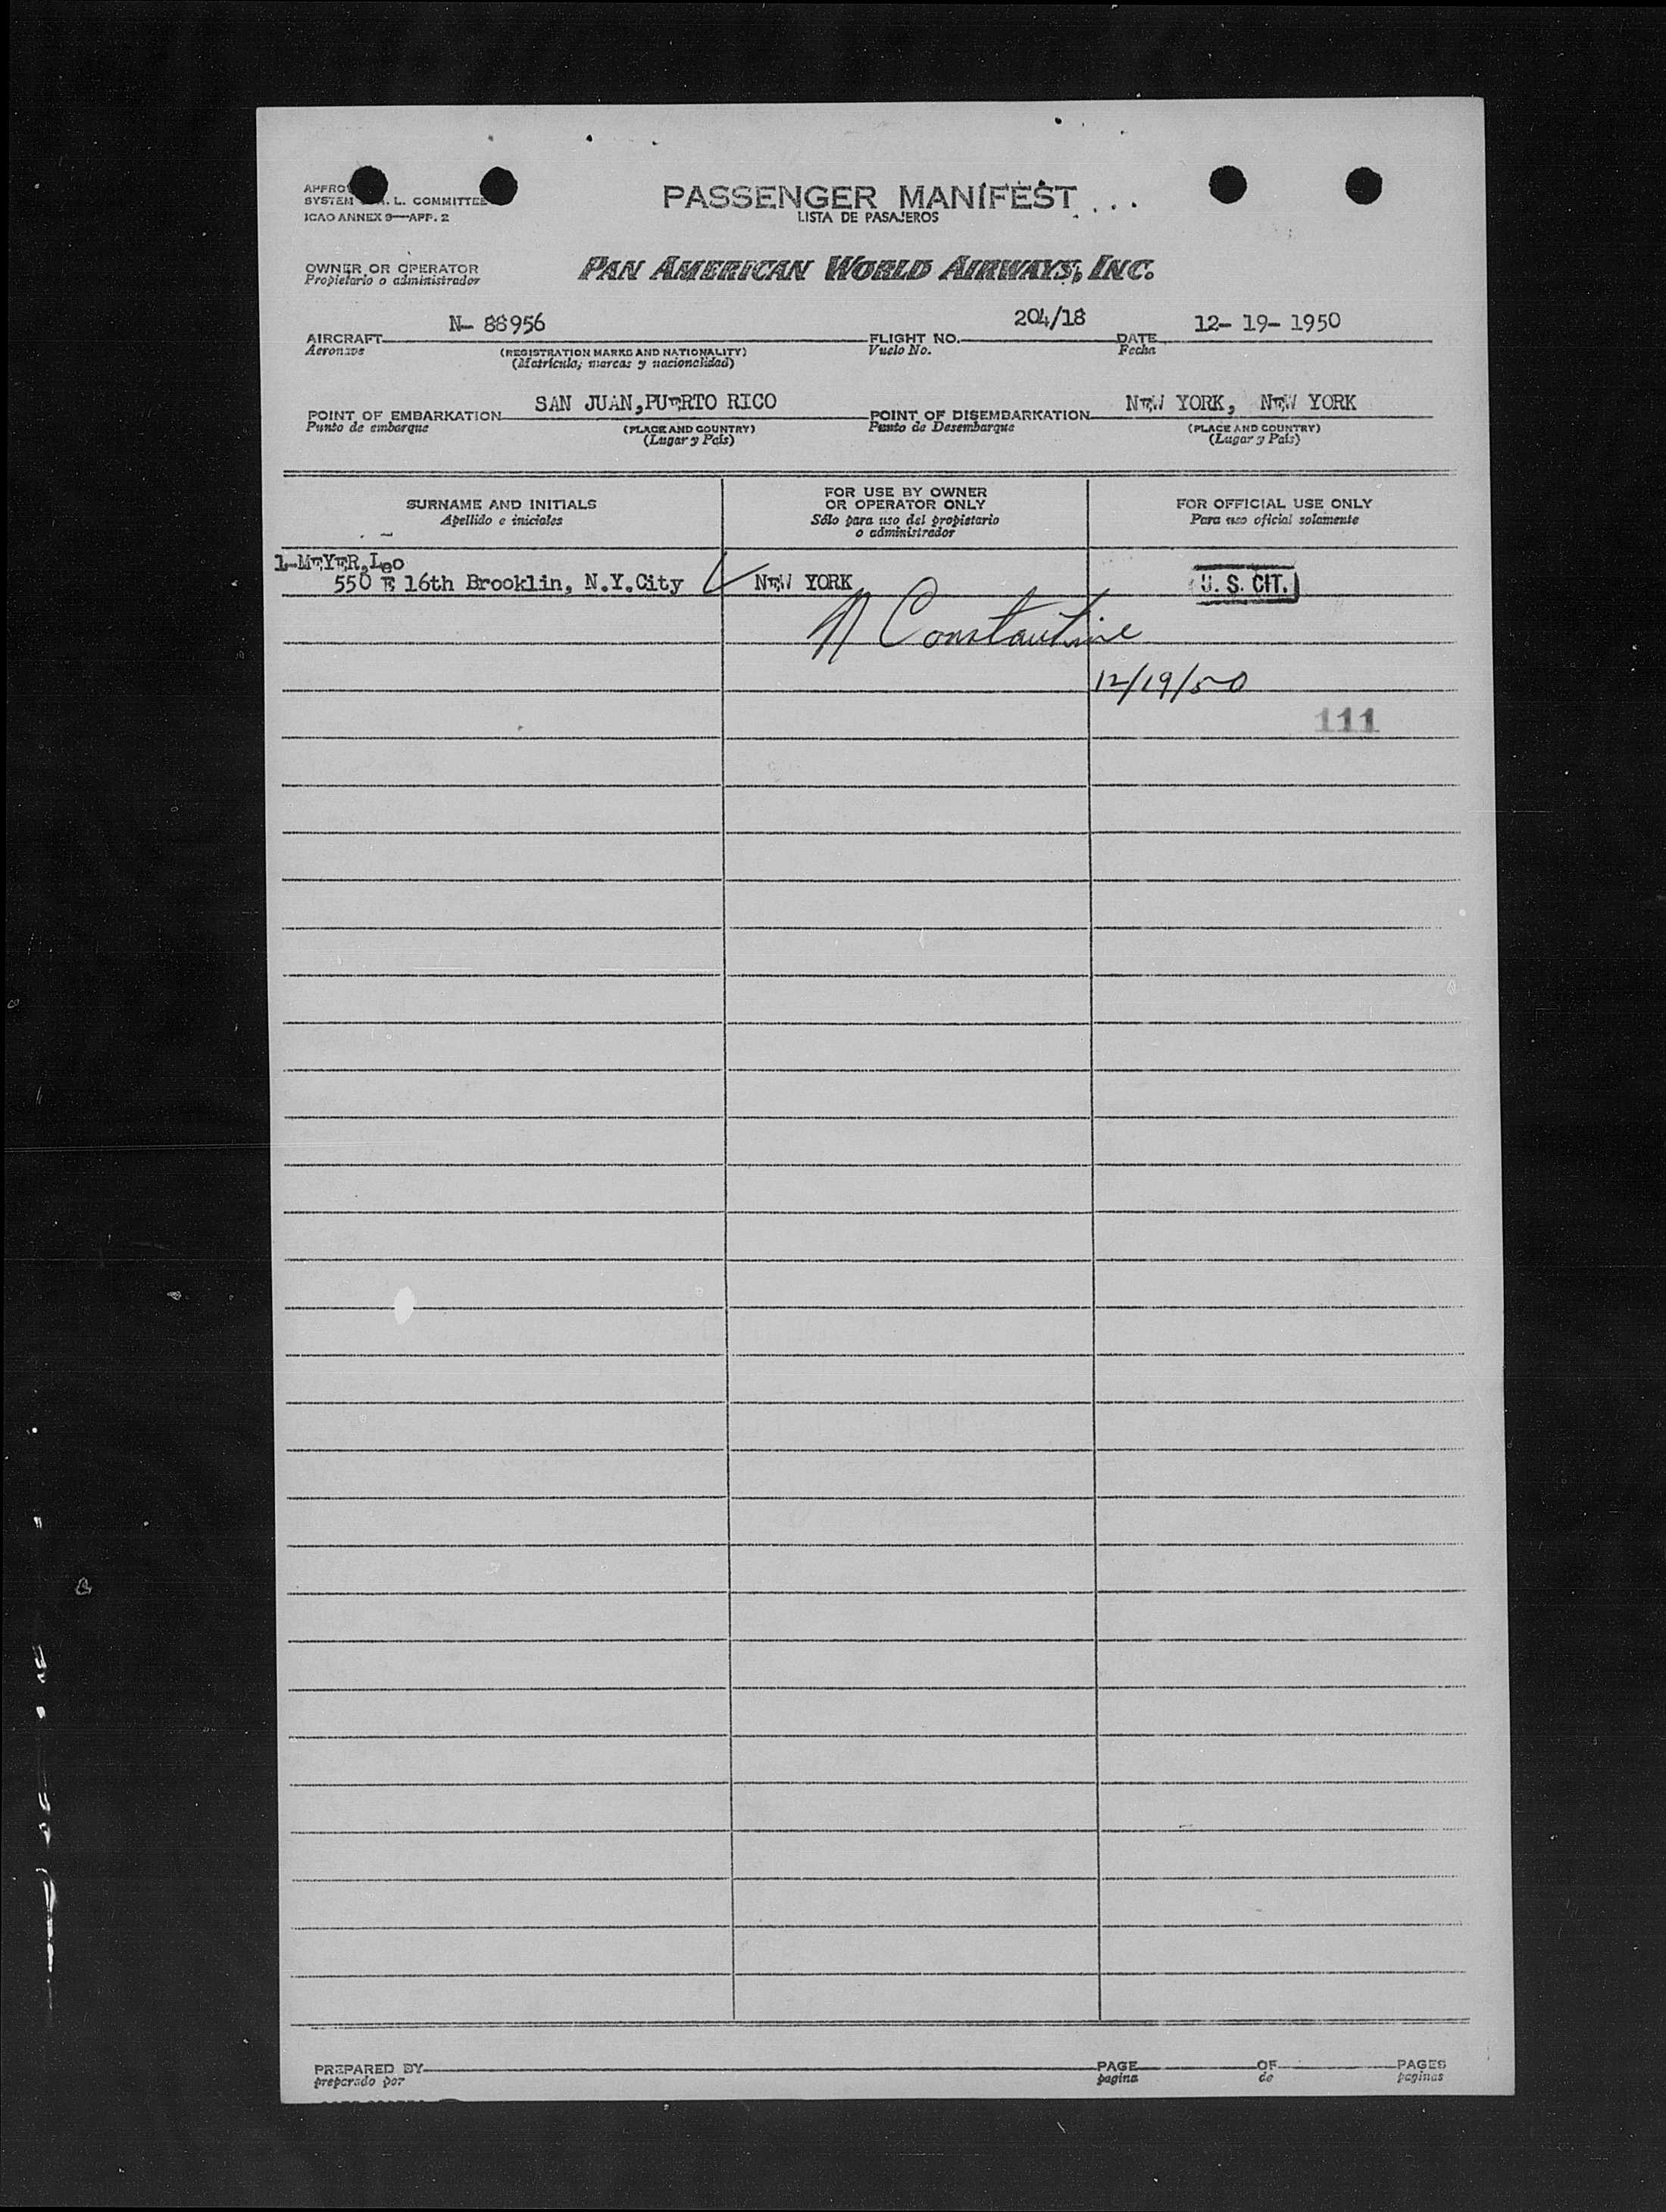 SYSTEM L. COMMITTEE
ICAO ANNEX 9—APP. 2
PASSENGER MANIFEST
LISTA DE PASAJEROS
OWNER OR OPERATOR
Propietario o administrador
PAN AMERICAN WORLD AIRWAYS, INC.
AIRCRAFT N- 88956 FLIGHT NO. 204/18 DATE 12- 19- 1950
Aeronave (REGISTRATION MARKS AND NATIONALITY) Vuelo No. Fecha
(Matrícula, marcas y nacionalidad)
POINT OF EMBARKATION SAN JUAN,PUERTO RICO POINT OF DISEMBARKATION NEW YORK, NEW YORK
Punto de embarque (PLACE AND COUNTRY) Punto de Desembarque (PLACE AND COUNTRY)
(Lugar y País) (Lugar y País)
SURNAME AND INITIALS
Apellido e iniciales
FOR USE BY OWNER
OR OPERATOR ONLY
Sólo para uso del propietario
o administrador
FOR OFFICIAL USE ONLY
Para uso oficial solamente
1-MEYER,Leo
550 E 16th Brooklin, N.Y.City NEW YORK U. S. CIT.
N Constantine
12/19/50
111
PREPARED BY PAGE OF PAGES
preparado por pagina de paginas